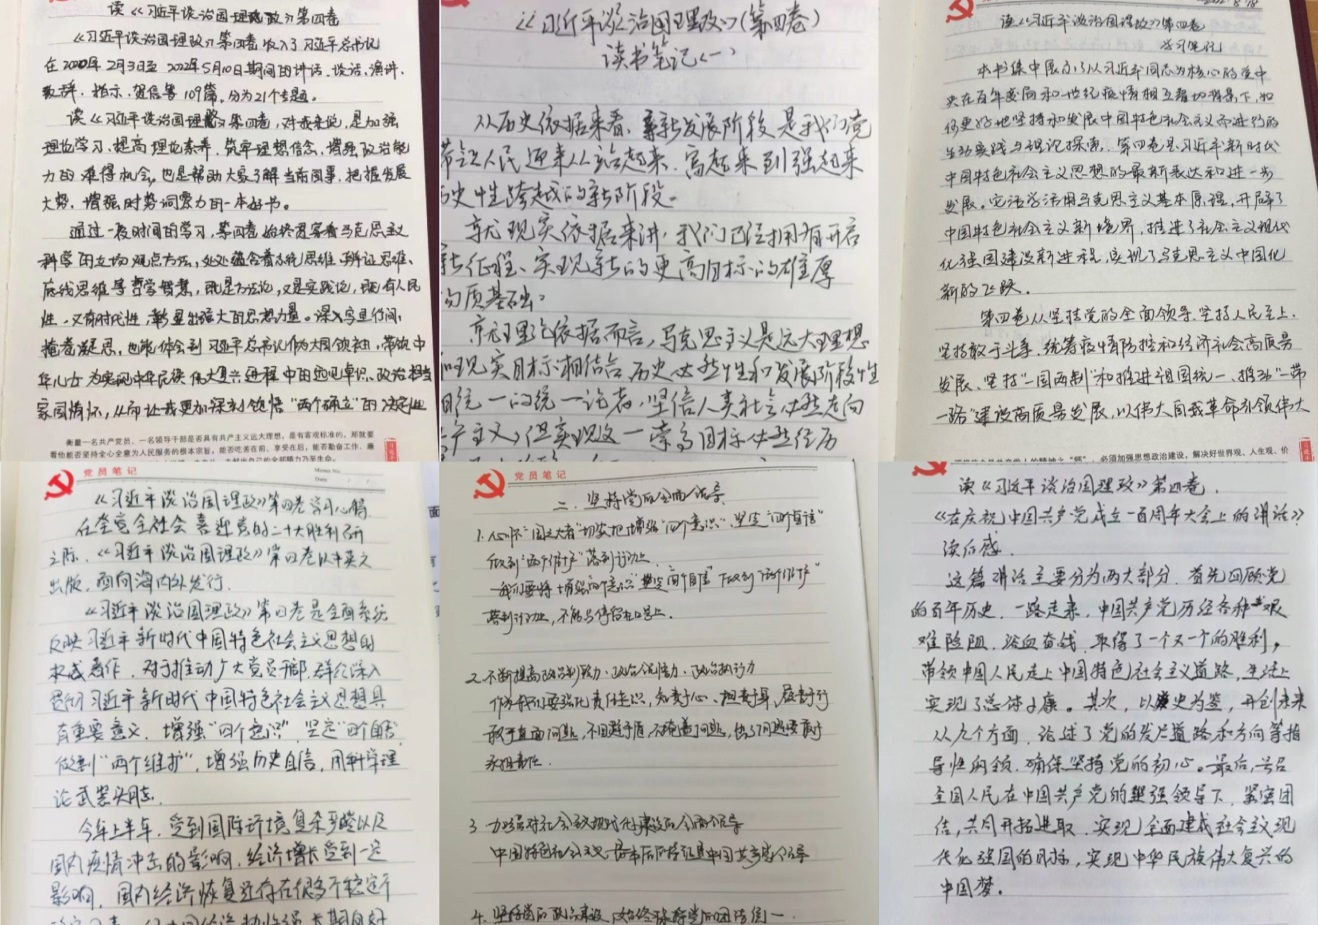 读《习近平谈治国理政》第四卷
《习近平谈治国理政》第四卷收入了习近平总书记
在2020年2月3日至2022年5月10日期间的讲话、谈话、演讲、
致辞、指示、贺信等109篇。分为21个专题。
读《习近平谈治国理政》第四卷，对我来说，是加强
理论学习、提高理论素养、筑牢理想信念、增强政治能
力的难得机会，也是帮助大家了解当前国事、把握发展
大势、增强时势洞察力的一本好书。
通过一段时间的学习，第四卷始终贯穿着马克思主义
科学的立场观点方法，处处蕴含着系统思维、辩证思维、
底线思维等哲学智慧，既是方法论，又是实践论，既有人民
性，又有时代性，彰显出强大的思想力量。深入字里行间，
掩卷凝思，也能体会到习近平总书记作为大国领袖，带领中
华儿女为实现中华民族伟大复兴进程中的远见卓识、政治担当
家国情怀，从而让我更加深刻领悟"两个确立"的决定性
衡量一名共产党员、一名领导干部是否具有共产主义远大理想，是有客观标准的，那就要
看他能否坚持全心全意为人民服务的根本宗旨，能否吃苦在前、享受在后，能否勤奋工作、廉
《习近平谈治国理政》（第四卷）
读书笔记（一）
从历史依据来看，新发展阶段是我们党
带领人民迎来从站起来、富起来到强起来
历史性跨越的新阶段。
就现实依据来讲，我们已经拥有开启
新征程、实现新的更高目标的雄厚
物质基础。
就理论依据而言，马克思主义是远大理想
和现实目标相结合、历史必然性和发展阶段性
相统一的统一论者，坚信人类社会必然走向
共产主义，但实现这一崇高目标必然经历
读《习近平谈治国理政》第四卷
学习笔记
本书集中展示了以习近平同志为核心的党中
央在百年变局和世纪疫情相互叠加背景下，如
何更好地坚持和发展中国特色社会主义而进行的
生动实践与理论探索。第四卷是习近平新时代
中国特色社会主义思想的最新表达和进一步
发展。它活学活用马克思主义基本原理，开辟了
中国特色社会主义新境界，推进了社会主义现代
化强国建设新进程，实现了马克思主义中国化
新的飞跃。
第四卷从坚持党的全面领导、坚持人民至上、
坚持敢于斗争、统筹疫情防控和经济社会高质量
发展、坚持"一国两制"和推进祖国统一、推动"一带
一路"建设高质量发展，以伟大自我革命引领伟大
必须加强思想政治建设，解决好世界观、人生观、价
党员笔记
Date
《习近平谈治国理政》第四卷学习心得
在全党全社会喜迎党的二十大胜利召开
之际，《习近平谈治国理政》第四卷以中英文
出版，面向海内外发行。
《习近平谈治国理政》第四卷是全面系统
反映习近平新时代中国特色社会主义思想的
权威著作，对于推动广大党员干部、群众深入
学习习近平新时代中国特色社会主义思想具
有重要意义，增强"四个意识"，坚定"四个自信"
做到"两个维护"，增强历史自信，用科学理
论武装头脑。
今年上半年，受到国际环境复杂多变以及
国内疫情冲击的影响，经济增长受到一定
影响，国内经济恢复还存在很多不稳定不
党员笔记
二、坚持党的全面领导
1. 心怀"国之大者"切实把增强"四个意识"、坚定"四个自信"
做到"两个维护"落到行动上
我们要将增强"四个意识"坚定"四个自信"做到"两个维护"
落到行动上，不能只停留在口号上。
2. 不断提高政治判断力、政治领悟力、政治执行力
作为我们要强化责任意识，知责于心、担责于身、履责于行
敢于直面问题，不回避矛盾，不掩盖问题，出了问题要敢于
承担责任。
3. 加强对社会主义现代化建设的全面领导
中国特色社会主义最本质的特征是中国共产党领导
4. 坚持党的政治建设，始终保持党的团结统一
读《习近平谈治国理政》第四卷.
《在庆祝中国共产党成立一百周年大会上的讲话》
读后感.
这篇讲话主要分为两大部分，首先回顾党
的百年历史，一路走来，中国共产党历经各种艰
难险阻，浴血奋战，取得了一个又一个的胜利，
带领中国人民走上中国特色社会主义道路，生活上
实现了总体小康。其次，以史为鉴，开创未来
从九个方面，论述了党的发展道路和方向等指
导性纲领，确保坚持党的初心。最后，号召
全国人民在中国共产党的坚强领导下，紧密团
结，共同开拓进取，实现全面建成社会主义现
代化强国的目标，实现中华民族伟大复兴的
中国梦。